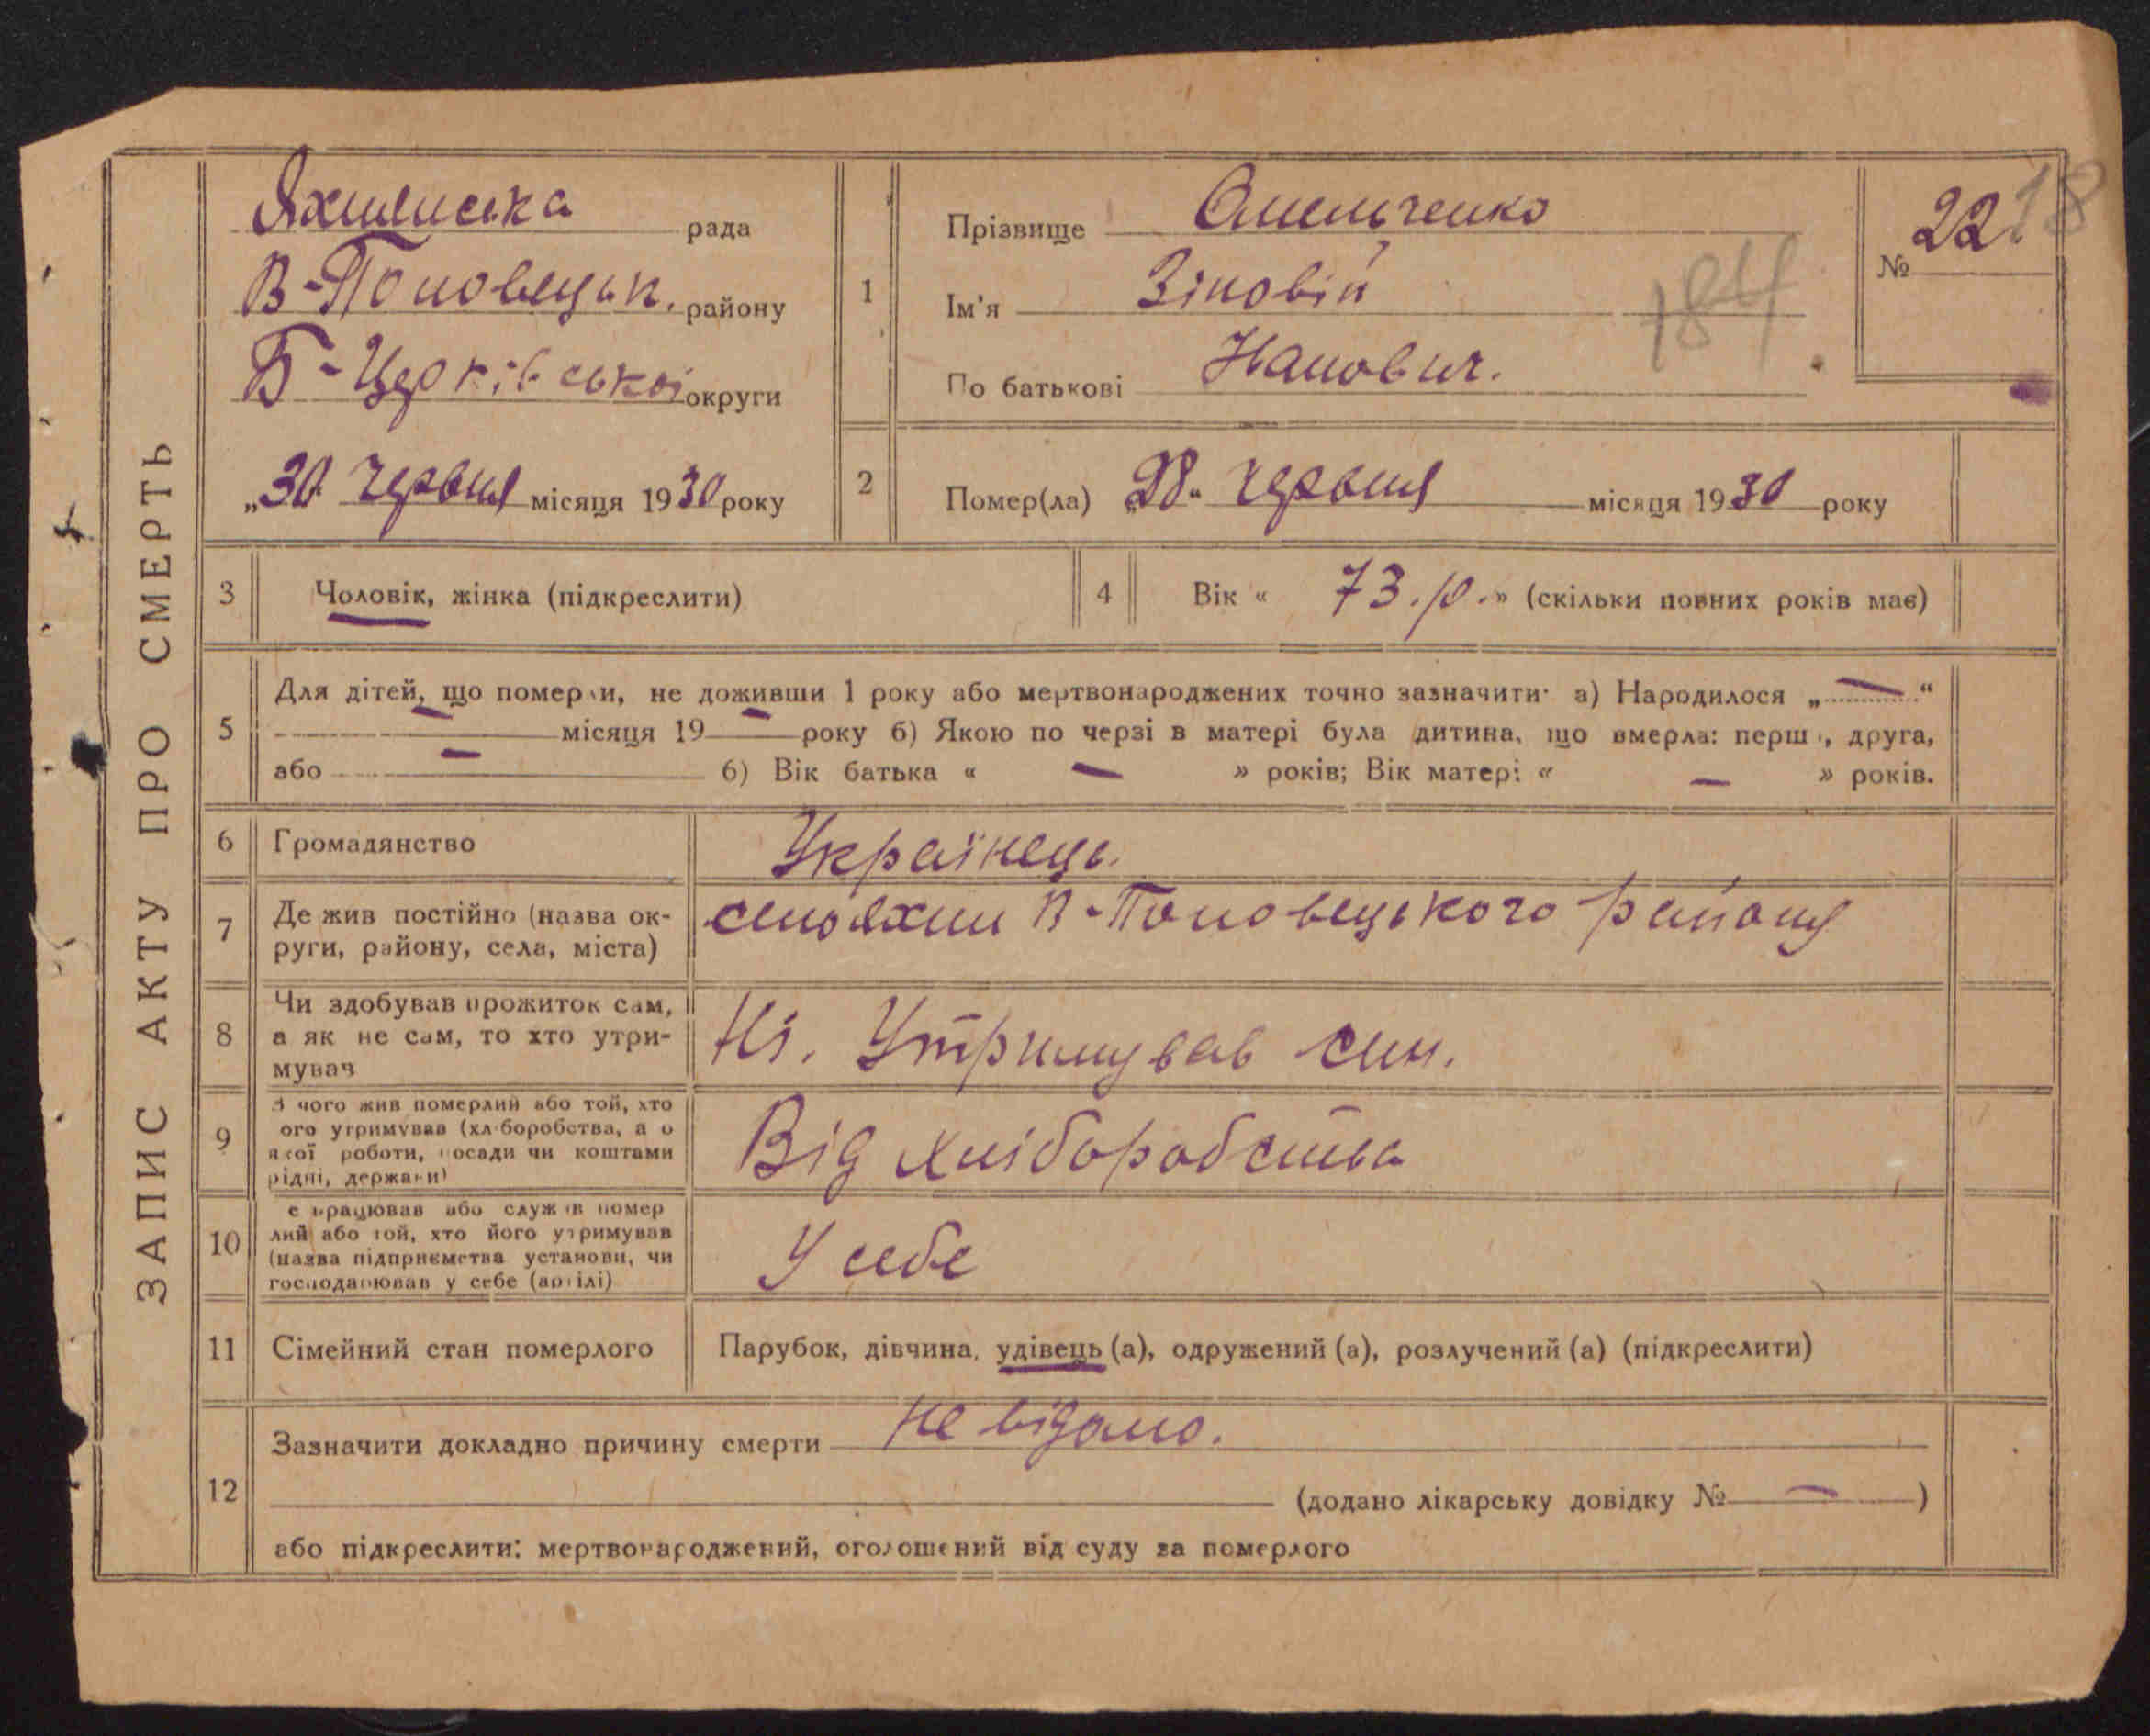 ЗАПИС АКТУ ПРО СМЕРТЬ
Яхнянська рада
В-Половецьк. району
Б-Церківської округи
„30 червня місяця 1930 року
1
Прізвище Омельченко
Ім'я Зіновій
По батькові
184
№ 22.
18
2
Помер(ла) „28" червня місяця 1930 року
3 Чоловік, жінка (підкреслити)
4 Вік « 73.р.» (скільки повних років має)
5 Для дітей, що померли, не доживши 1 року або мертвонароджених точно зазначити: а) Народилося „ — “
— місяця 19 — року б) Якою по черзі в матері була дитина, що вмерла: перша, друга,
або — б) Вік батька « — » років; Вік матері « — » років.
6 Громадянство Українець.
7 Де жив постійно (назва ок-
руги, району, села, міста)
село Яхни В-Половецького району
8 Чи здобував прожиток сам,
а як не сам, то хто утри-
мував
Ні. Утримував син.
9 З чого жив померлий або той, хто
ого утримував (хліборобства, а о
якої роботи, посади чи коштами
рідні, держави)
Від хліборобства
10 е працював або служив помер
лий або той, хто його утримував
(назва підприємства установи, чи
господарював у себе (артілі)
У себе
11 Сімейний стан померлого Парубок, дівчина, удівець (а), одружений (а), розлучений (а) (підкреслити)
12 Зазначити докладно причину смерти не відомо.
(додано лікарську довідку № — )
або підкреслити: мертвонароджений, оголошений від суду за померлого